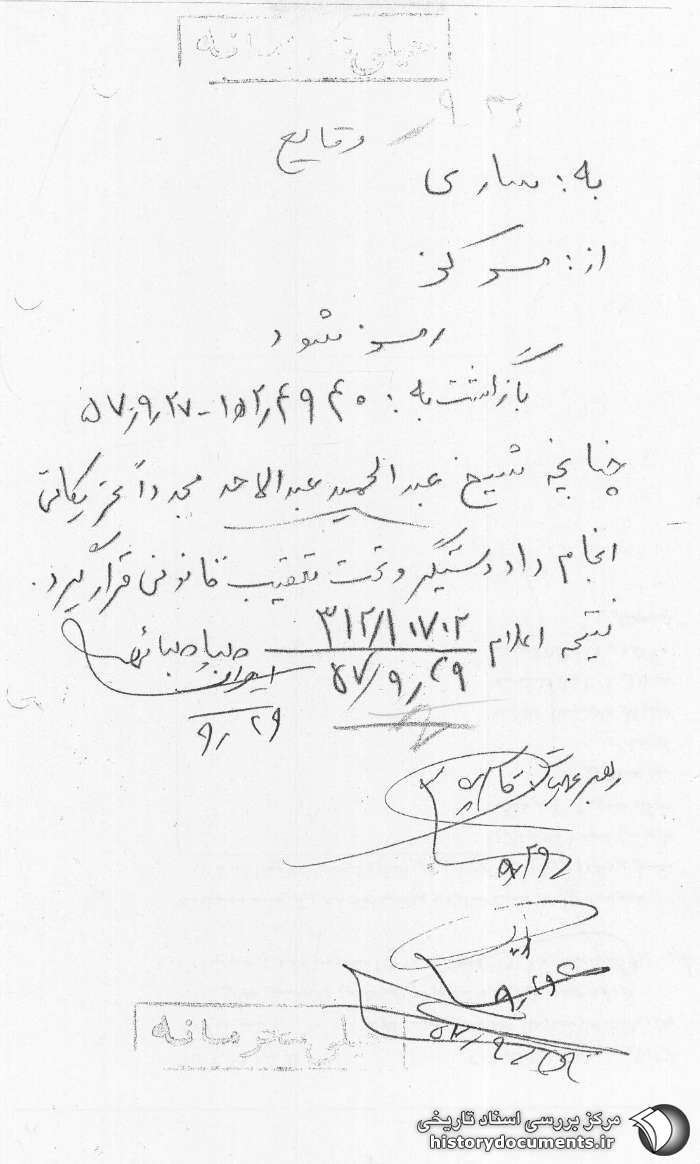 خیلی محرمانه
۹/۳۰
وقایع
به: ساری
از: مرکز
رمز شود
بازگشت به: ۱۵۲٫۴۹۴۰-۵۷٫۹٫۲۷
چنانچه شیخ عبدالحمید عبدالاحد مجدداً تحریکاتی
انجام داد دستگیر و تحت تعقیب قانونی قرار گیرد.
نتیجه اعلام
۳۱۲/۱۰۷۰۲
۵۷/۹٫۲۹
صبا صبائی
ایران
۹٫۲۹
رهبر عملیات
۹٫۲۹
۹٫۲۹
۵۷٫۹٫۲۹
خیلی محرمانه
مرکز بررسی اسناد تاریخی
historydocuments.ir